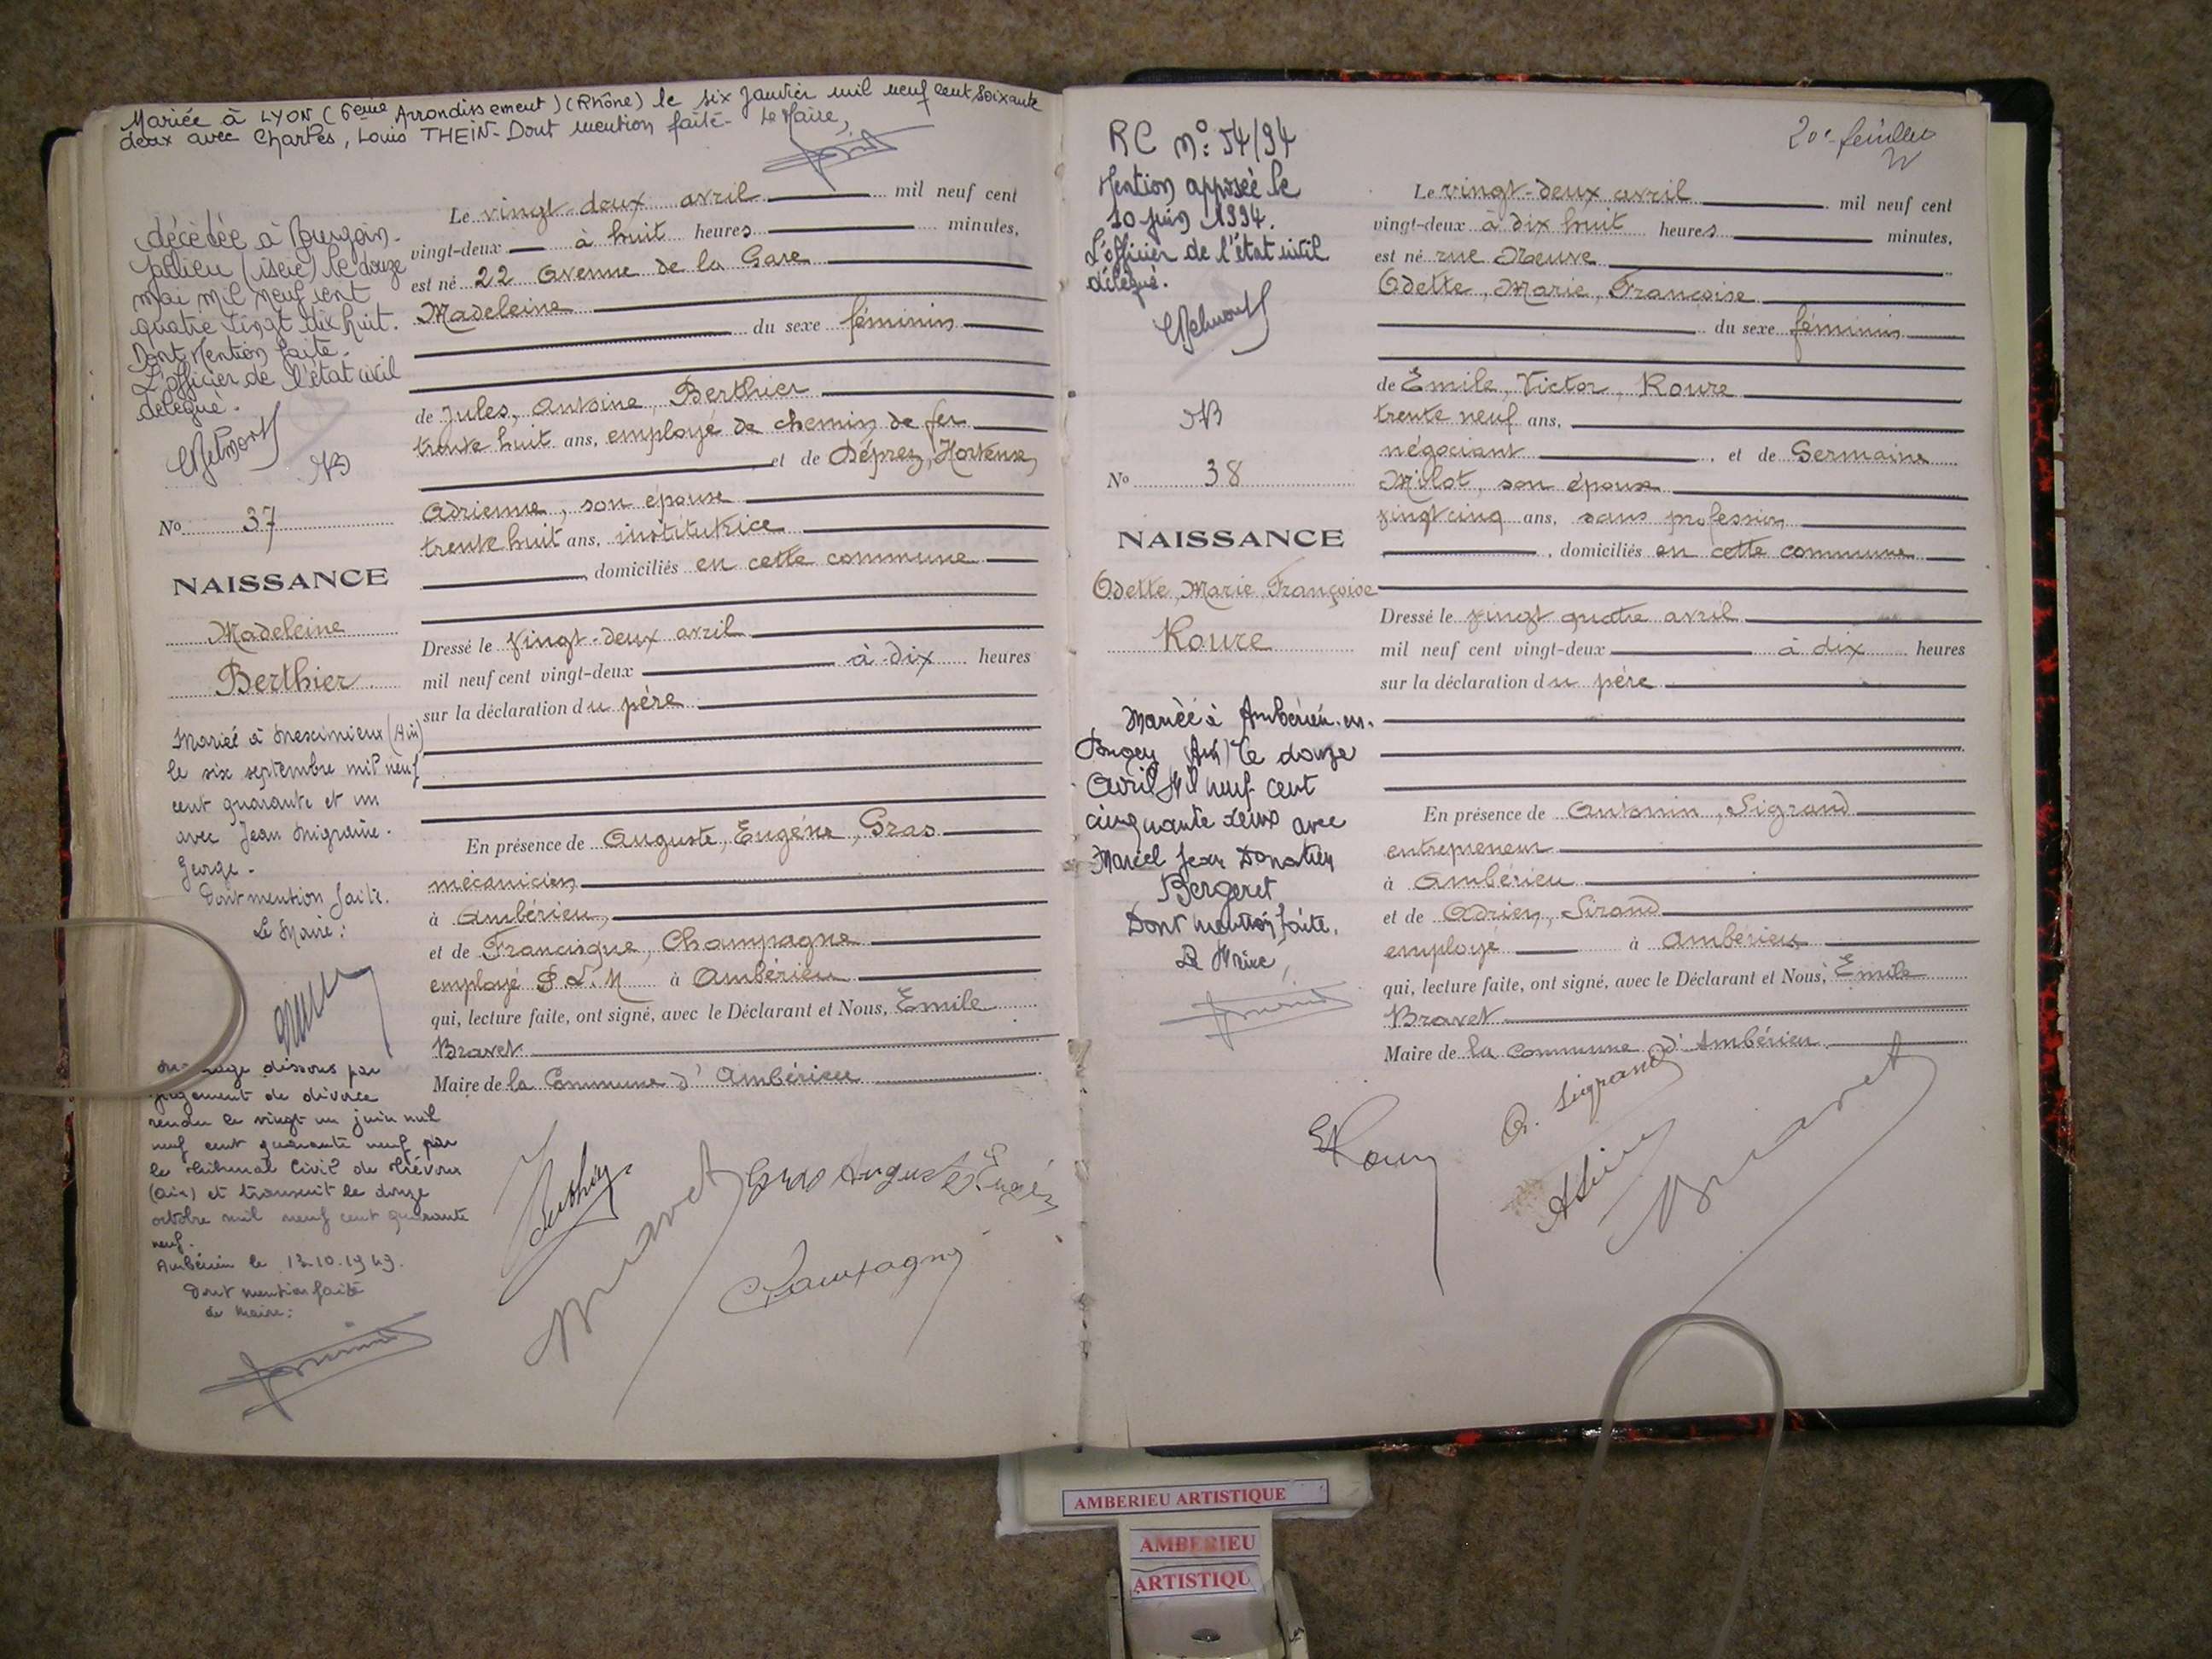 Mariée à LYON (6ème Arrondissement) (Rhône) le six Janvier mil neuf cent soixante
deux avec Charles, Louis THEIN - Dont mention faite - Le Maire,
décédée à Bourgoin-
Jallieu (isère) le douze
mai mil neuf cent
quatre vingt dix huit.
Dont Mention faite.
L'officier de l'état civil
délégué.
No 37
NAISSANCE
Madeleine
Berthier
Mariée à Meximieux (Ain)
le six septembre mil neuf
cent quarante et un
avec Jean Migraine.
George -
Dont mention faite.
Le Maire :
Mariage dissous par
jugement de divorce
rendu le vingt un juin mil
neuf cent quarante neuf par
le Tribunal Civil de Trévoux
(Ain) et transcrit le douze
octobre mil neuf cent quarante
neuf.
Ambérieu le 13.10.1949.
Dont mention faite
Le Maire :
Le vingt-deux avril mil neuf cent
vingt-deux à huit heures minutes,
est né 22 Avenue de la Gare
Madeleine
du sexe féminin
de Jules, Antoine, Berthier
trente huit ans, employé de chemin de fer
et de Déprez, Hortense,
Adrienne, son épouse
trente huit ans, institutrice
, domiciliés en cette commune
Dressé le vingt-deux avril
mil neuf cent vingt-deux à dix heures
sur la déclaration du père
En présence de Auguste, Eugène, Gras
mécanicien
à Ambérieu,
et de Francisque, Champagne
employé P.L.M à Ambérieu
qui, lecture faite, ont signé, avec le Déclarant et Nous, Emile
Bravet
Maire de la Commune d'Ambérieu
Berthier
Bravet
Gras Auguste Eugène
Champagne
RC n°: 54/94
Mention apposée le
10 juin 1994.
L'officier de l'état civil
délégué.
No 38
NAISSANCE
Odette, Marie, Françoise
Roure
Mariée à Ambérieu-en-
Bugey (Ain) le douze
Avril Mil neuf cent
cinquante deux avec
Marcel Jean Donatien
Bergeret
Dont mention faite.
Le Maire,
20e feuillet
Le vingt-deux avril mil neuf cent
vingt-deux à dix huit heures minutes,
est né rue Neuve
Odette, Marie, Françoise
du sexe féminin
de Emile, Victor, Roure
trente neuf ans,
négociant , et de Germaine
Milot, son épouse
vingt cinq ans, sans profession
, domiciliés en cette commune
Dressé le vingt quatre avril
mil neuf cent vingt-deux à dix heures
sur la déclaration du père
En présence de Antonin, Sigrand
entrepreneur
à Ambérieu
et de Adrien, Sirand
employé à Ambérieu
qui, lecture faite, ont signé, avec le Déclarant et Nous, Emile
Bravet
Maire de la Commune d'Ambérieu
E Roure
A. Sigrand
Bravet
AMBERIEU ARTISTIQUE
AMBERIEU
ARTISTIQU